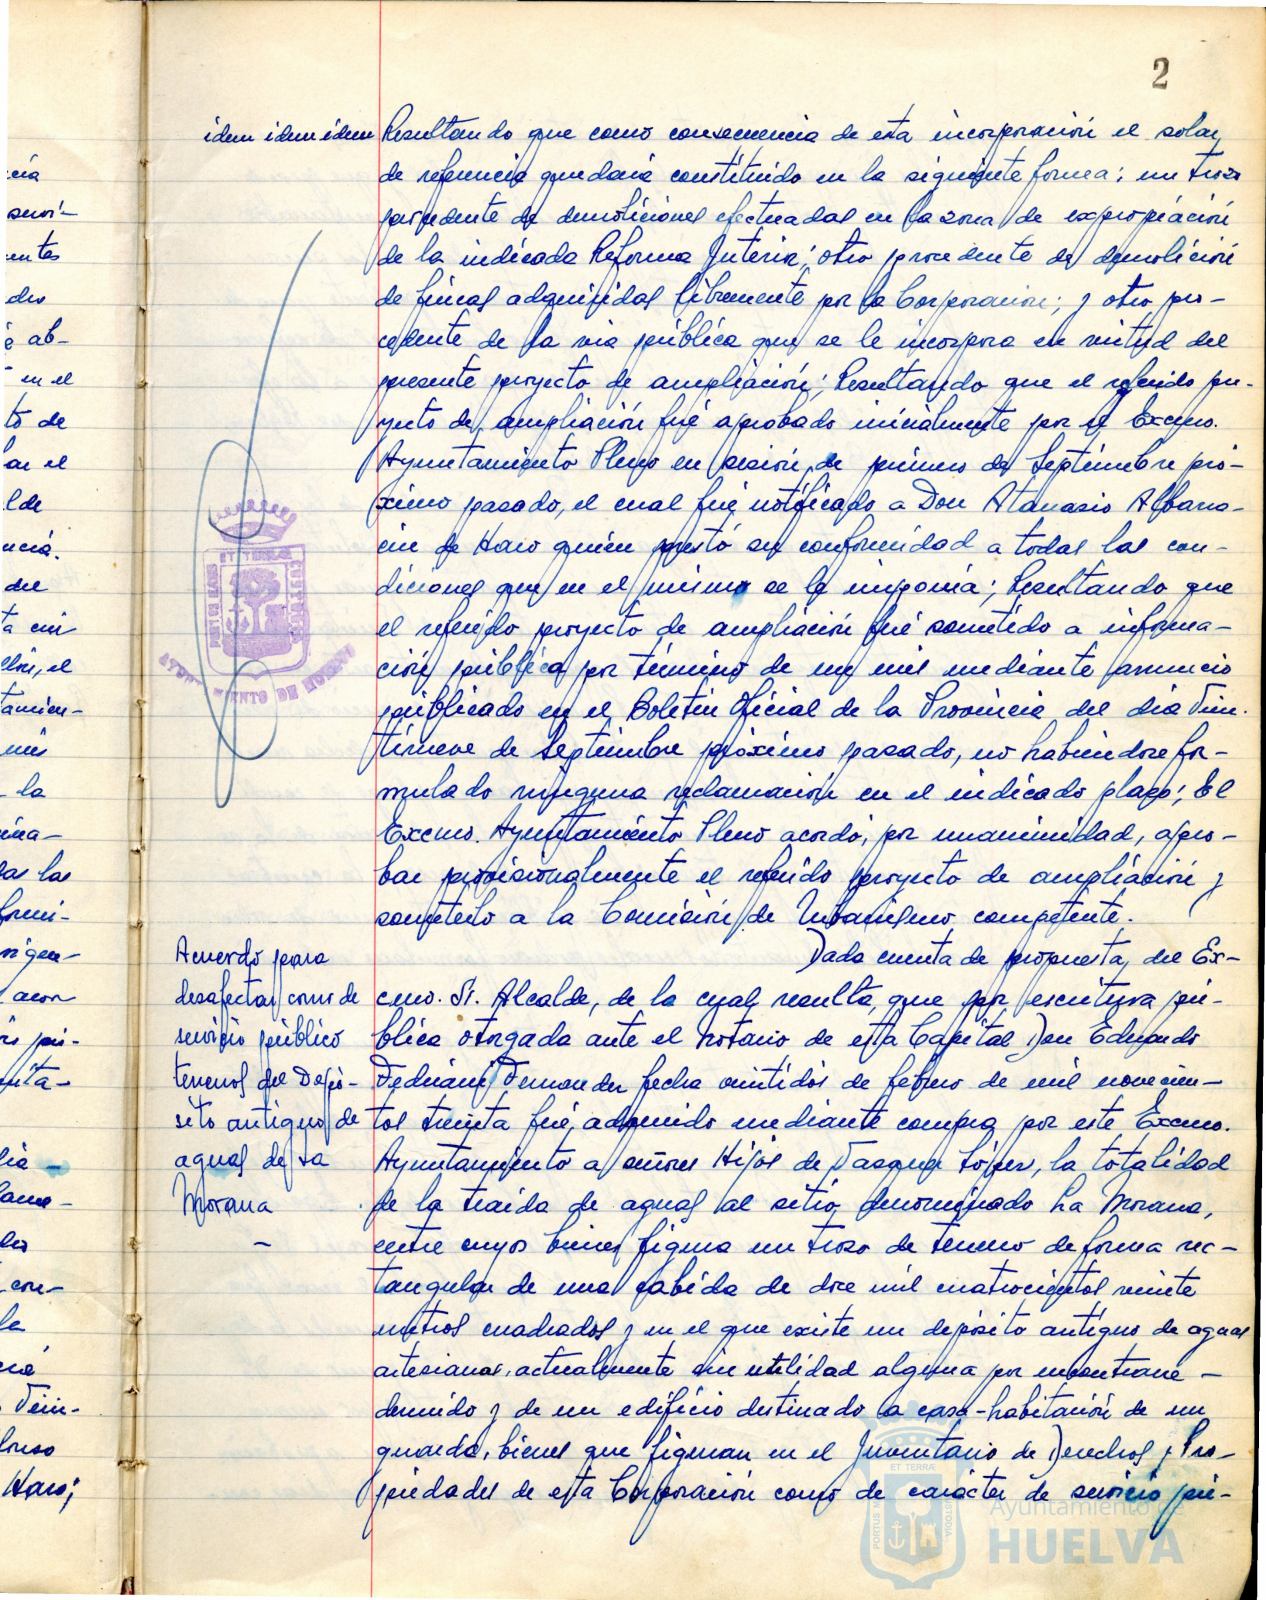 2
idem idem idem Resultando que como consecuencia de esta incorporación el solar
de referencia quedaria constituido en la siguiente forma: un trozo
procedente de demoliciones efectuadas en la zona de expropiación
de la indicada Reforma Interior; otro procedente de demolición
de fincas adquiridas libremente por la Corporación; y otro pro-
cedente de la via pública que se le incorpora en virtud del
presente proyecto de ampliación; Resultando que el referido pro-
yecto de ampliación fué aprobado inicialmente por el Excmo.
Ayuntamiento Pleno en sesión de primero de Septiembre pró-
ximo pasado, el cual fué notificado a Don Atanasio Albarra-
cin de Haro quien prestó su conformidad a todas las con-
diciones que en el mismo se le imponia; Resultando que
el referido proyecto de ampliación fué sometido a informa-
ción pública por término de un mes mediante anuncio
publicado en el Boletin Oficial de la Provincia del dia Vein-
tinueve de Septiembre próximo pasado, no habiendose for-
mulado ninguna reclamación en el indicado plazo; El
Excmo. Ayuntamiento Pleno acordó, por unanimidad, apro-
bar provisionalmente el referido proyecto de ampliación y
someterlo a la Comisión de Urbanismo competente.
Acuerdo para
desafectar como de
servicio público
terrenos del Depó-
sito antiguo de
aguas de La
Morana
Dada cuenta de propuesta del Ex-
cmo. Sr. Alcalde, de la cual resulta, que por escritura pú-
blica otorgada ante el notario de esta Capital Don Eduardo
Fedriani Fernandez fecha veintidós de febrero de mil novecien-
tos treinta fué adquirido mediante compra por este Excmo.
Ayuntamiento a señores Hijos de Vazquez López, la totalidad
de la traida de aguas al sitio denominado La Morana,
entre cuyos bienes figura un trozo de terreno de forma rec-
tangular de una cabida de doce mil cuatrocientos veinte
metros cuadrados y en el que existe un depósito antiguo de aguas
artesianas, actualmente sin utilidad alguna por encontrarse
derruido y de un edificio destinado a casa-habitación de un
guarda, bienes que figuran en el Inventario de Derechos y Pro-
piedades de esta Corporación como de carácter de servicio pú-
Ayuntamiento de
HUELVA